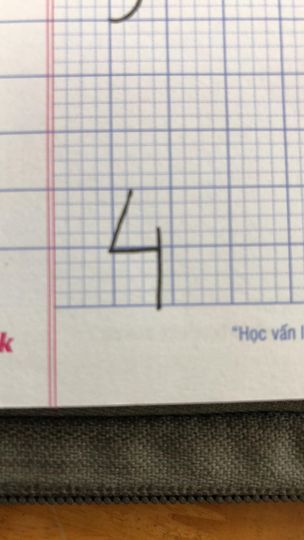 4
k
"Học vấn l